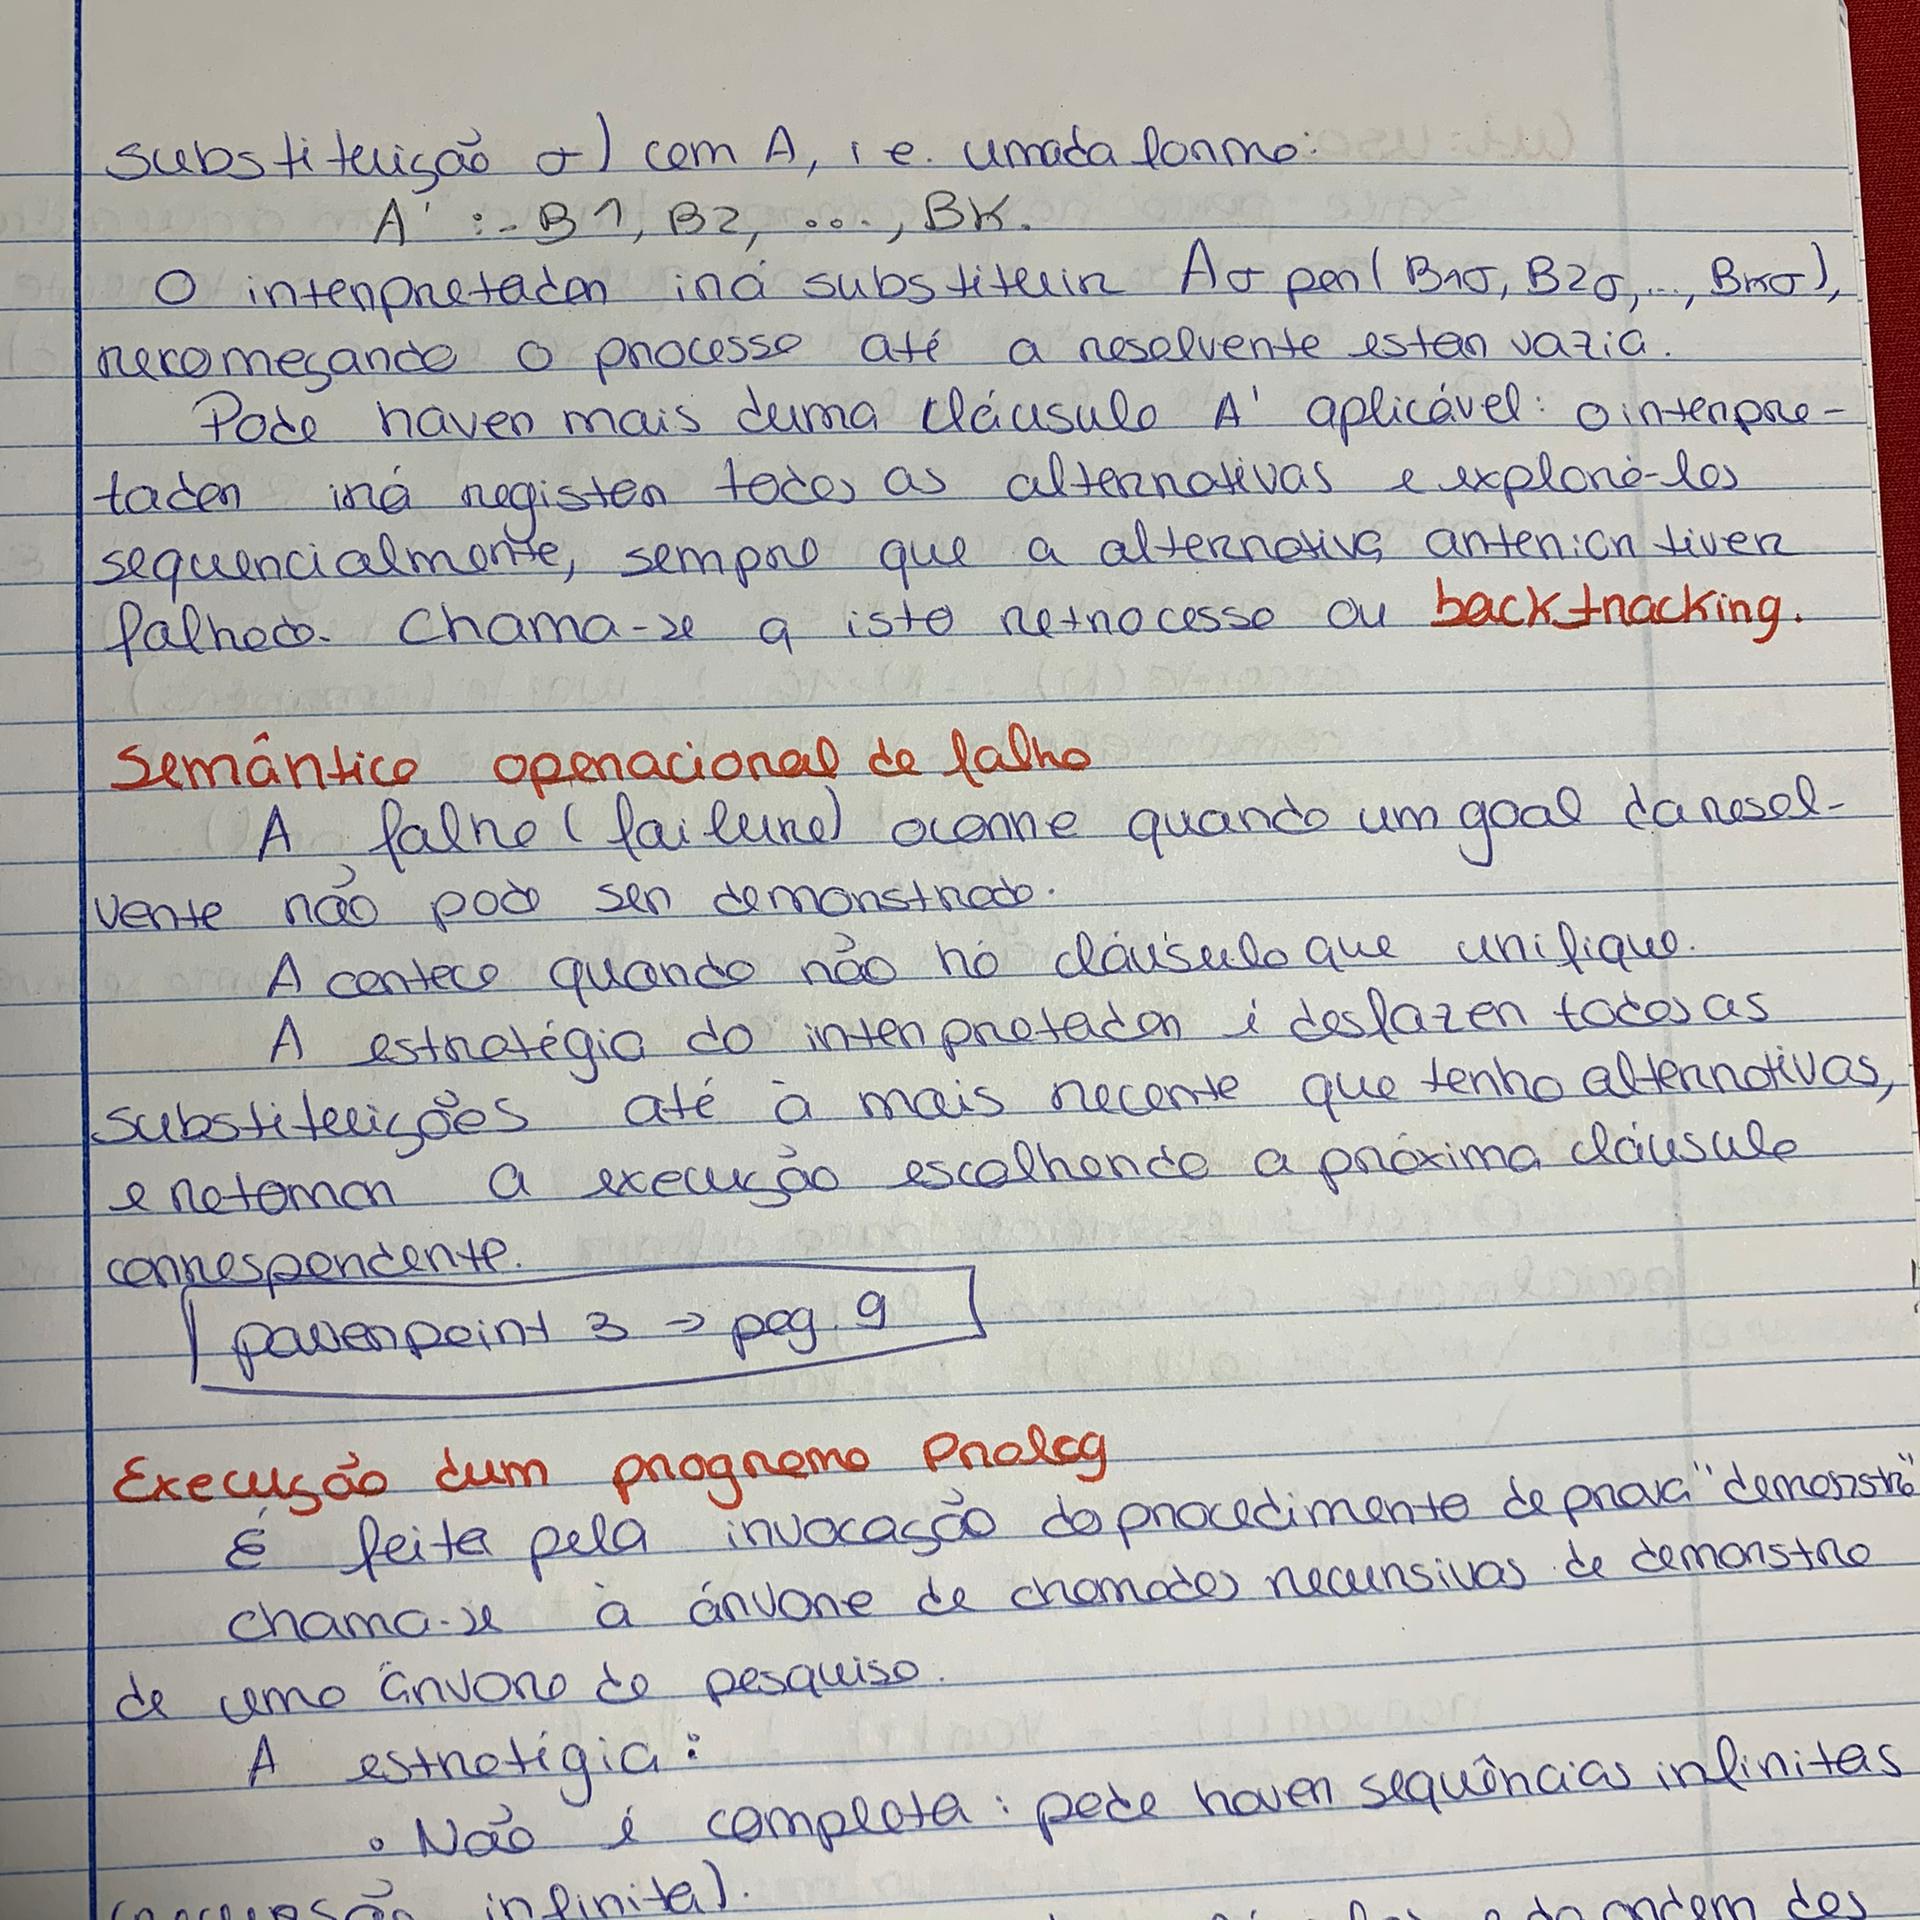 substituição σ) com A, i e. uma da forma:
A' :- B1, B2, ..., BK.
O interpretador irá substituir Aσ por (B1σ, B2σ, ..., BKσ),
recomeçando o processo até a resolvente estar vazia.
Pode haver mais duma cláusula A' aplicável: o interpre-
tador irá registar todas as alternativas e explorá-las
sequencialmente, sempre que a alternativa anterior tiver
falhado. Chama-se a isto retrocesso ou backtracking.
Semântica operacional de falha
A falha (failure) ocorre quando um goal da resol-
vente não pode ser demonstrado.
Acontece quando não há cláusula que unifique.
A estratégia do interpretador é desfazer todas as
substituições até à mais recente que tenha alternativas,
e retomar a execução escolhendo a próxima cláusula
correspondente.
powerpoint 3 → pag. 9
Execução dum programa Prolog
É feita pela invocação do procedimento de prova "demonstra"
chama-se à árvore de chamadas recursivas de demonstra
de uma árvore de pesquisa.
A estratégia:
• Não é completa: pode haver sequências infinitas
infinita).
da ordem dos